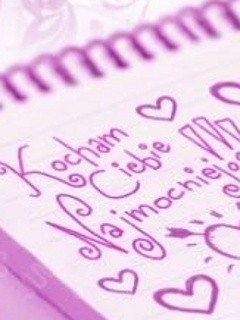 Kocham
Ciebie
Najmocniej